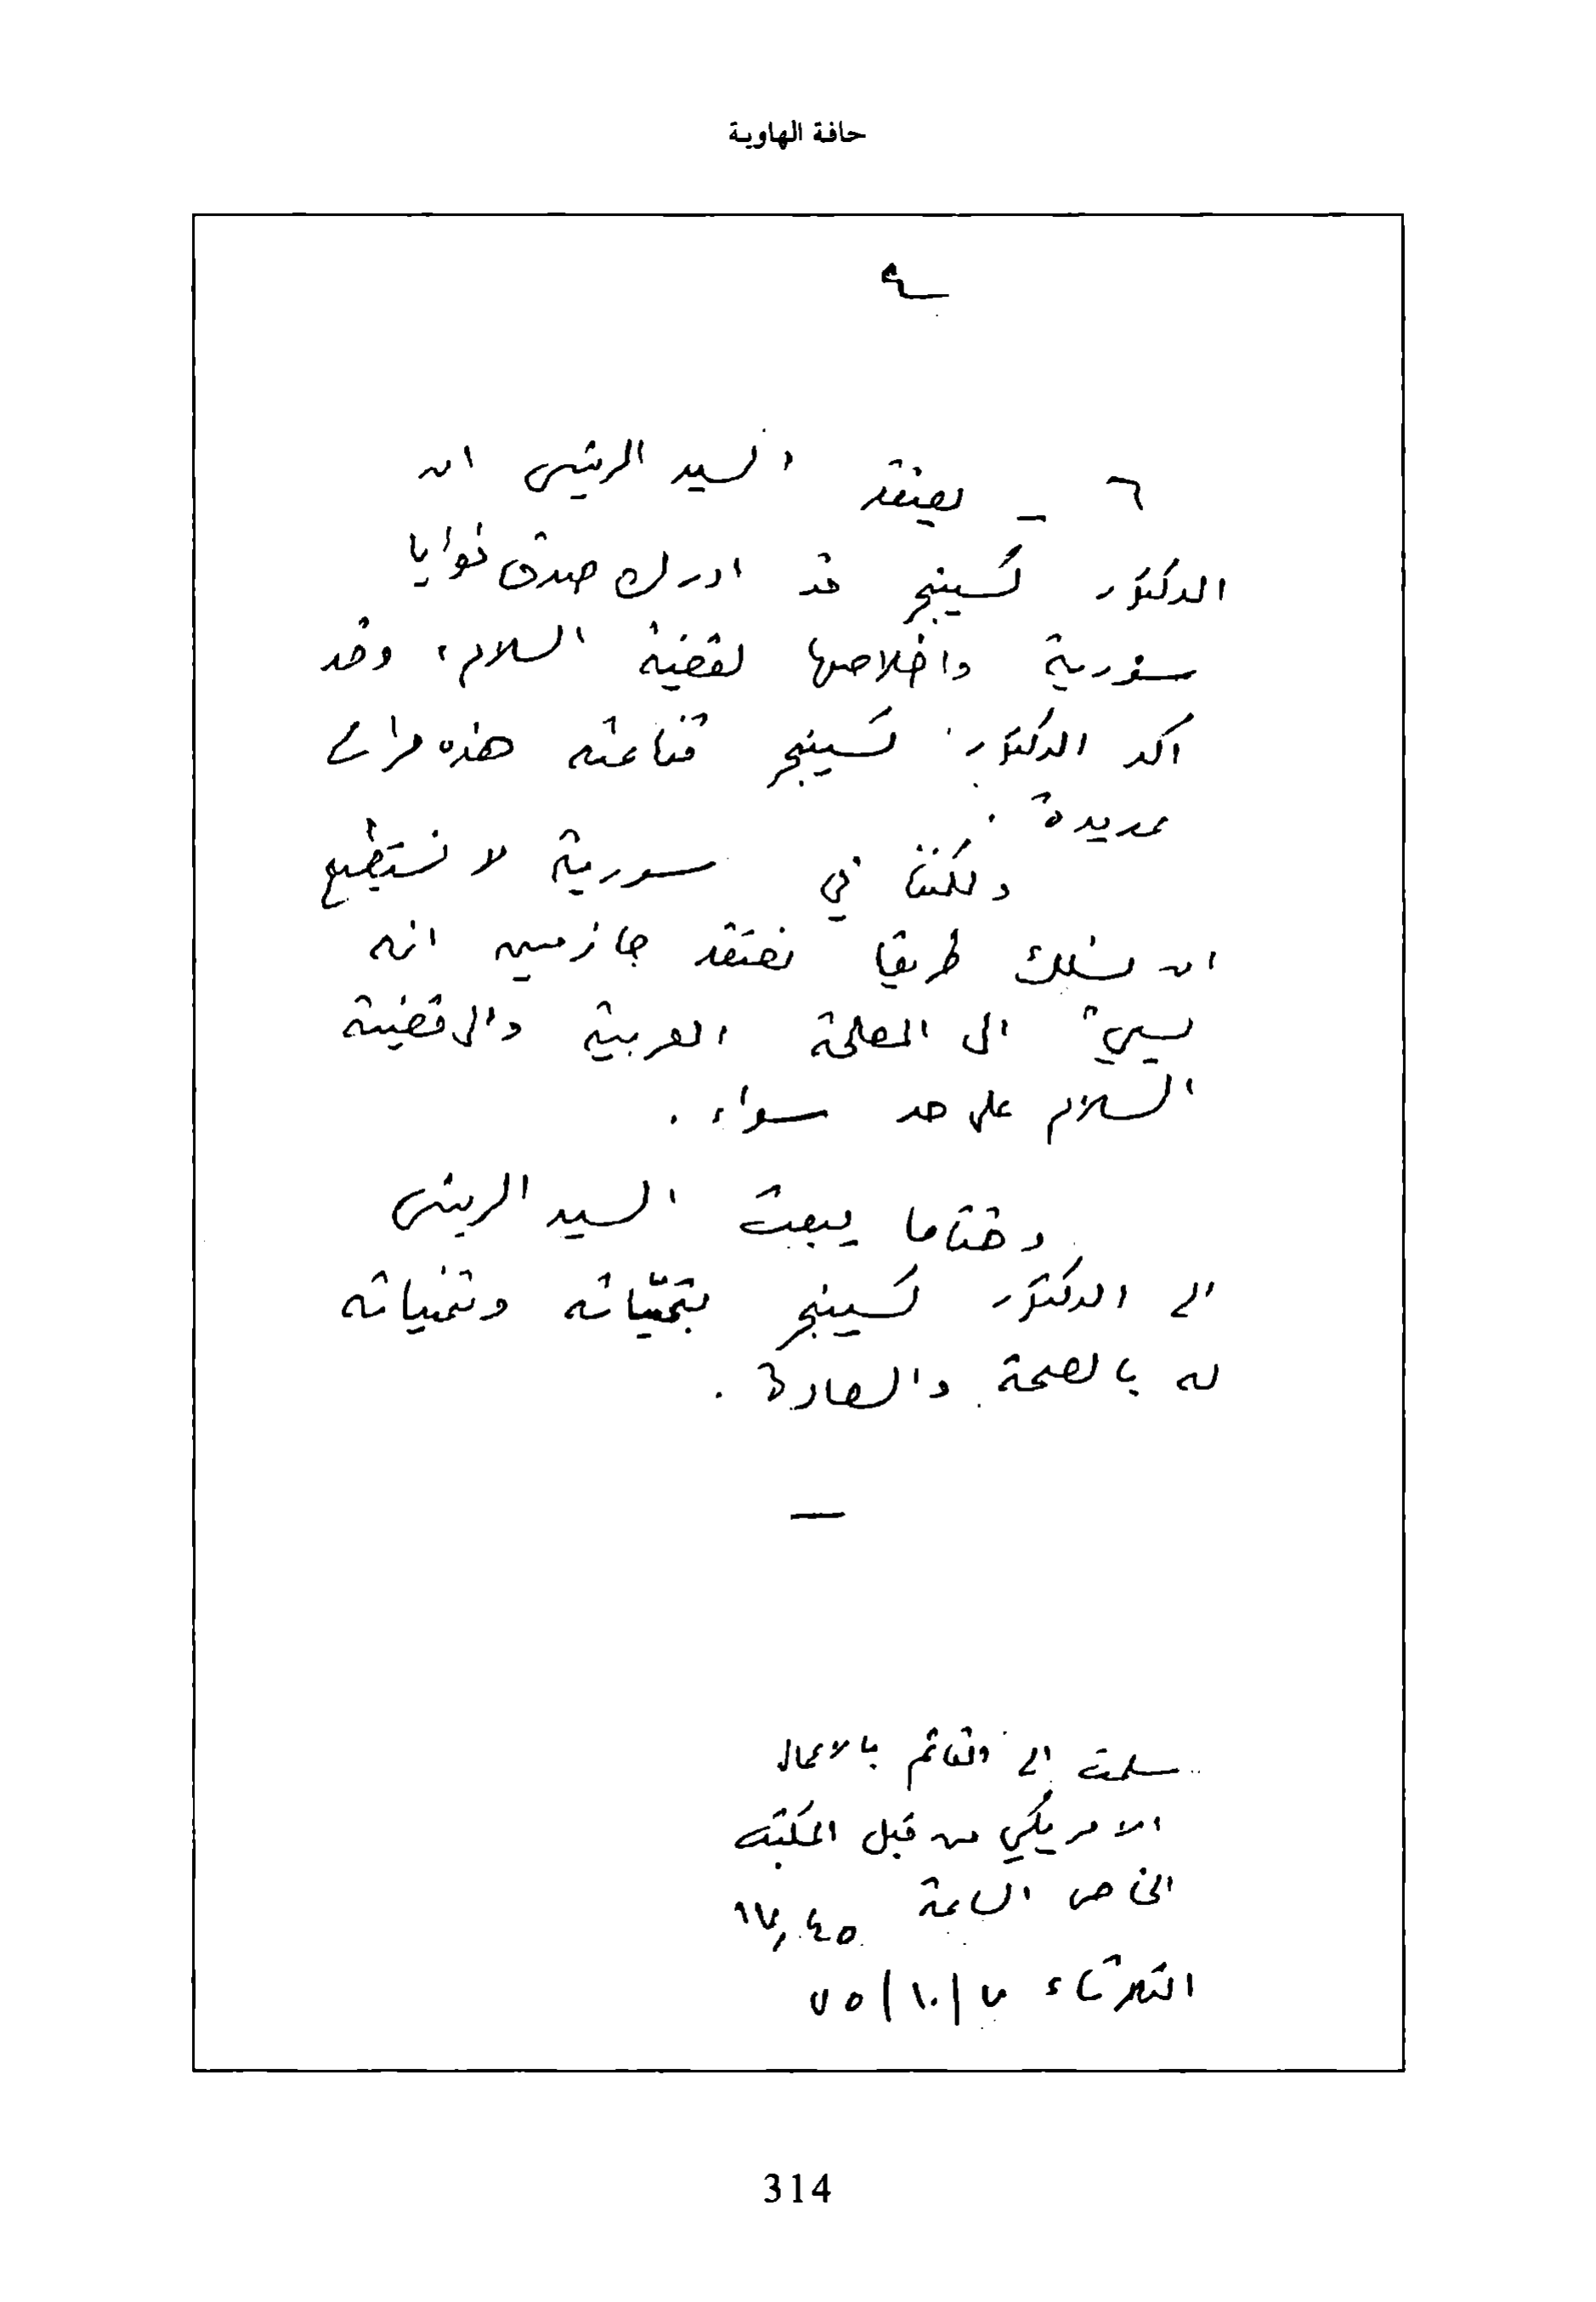 حافة الهاوية
٤
٦ - يعتقد السيد الرئيس ان
الدكتور كسينجر قد ادرك صدق نوايا
سورية واخلاصها لقضية السلام، وقد
اكد الدكتور كسينجر قناعته هذه مرات
عديدة .
ولكننا في سورية لا نستطيع
ان نسلك طريقا نعتقد جازمين انه
يسيء الى المصلحة العربية والى قضية
السلام على حد سواء .
وختاما يبعث السيد الرئيس
الى الدكتور كسينجر بتحياته وتمنياته
له بالصحة والسعادة .
سلمت الى القائم بالاعمال
الامريكي من قبل المكتب
الخاص الساعة ١٧,٤٥
الثلاثاء ٧/١٠/٧٥
314